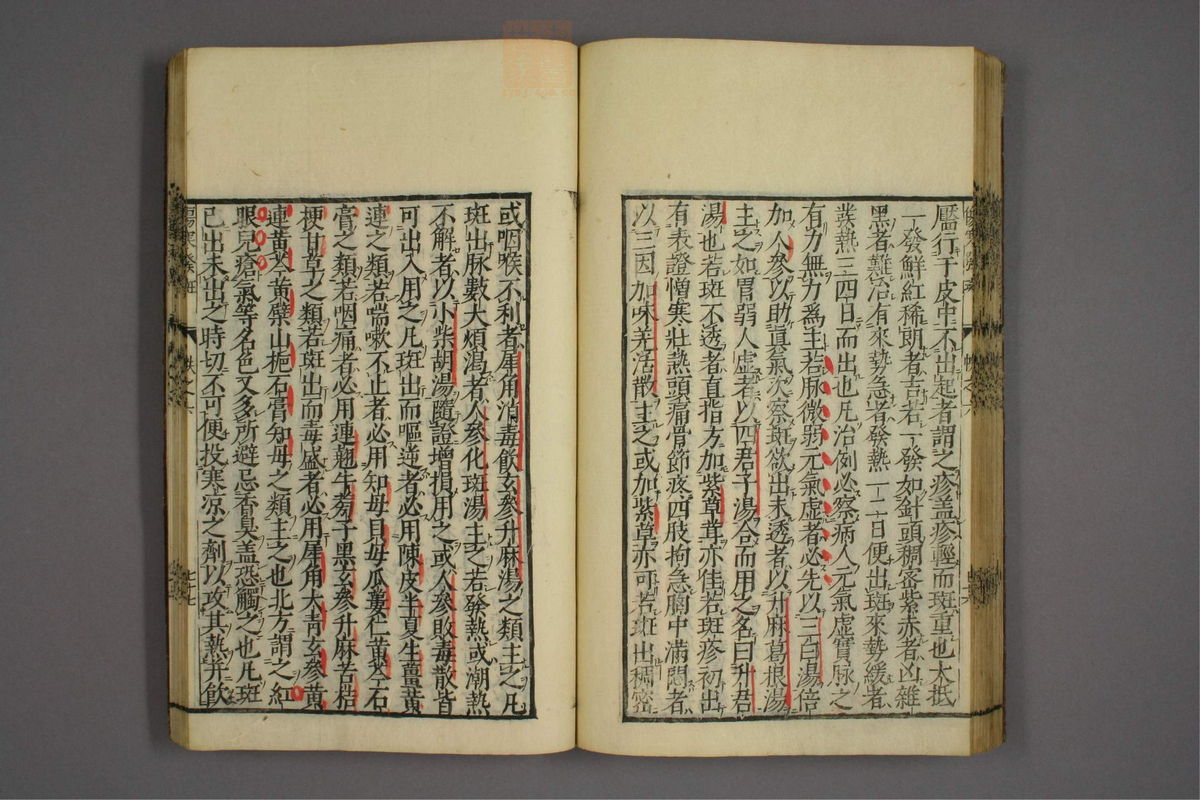 壓行于皮中不出起者謂之疹蓋疹輕而斑重也大抵
一發鮮紅稀朗者吉若一發如針頭稠密紫赤者凶雜
黑者難治有來勢急者發熱一二日便出斑來勢緩者
發熱三四日而出也凡治例必察病人元氣虛實脉之
有力無力爲主若脉微弱元氣虛者必先以三白湯倍
加人參以助眞氣次察斑欲出未透者以升麻葛根湯
主之如胃弱人虛者以四君子湯合而用之名曰升君
湯也若斑不透者直指方加紫草茸亦佳若斑疹初出
有表證憎寒壯熱頭痛骨節疼四肢拘急胸中滿悶者
以三因加味羌活散主之或加紫草亦可若斑出稠密
或咽喉不利者犀角消毒飲玄參升麻湯之類主之凡
斑出脉數大煩渴者人參化斑湯主之若發熱或潮熱
不解者以小柴胡湯隨證增損用之或人參敗毒散皆
可出入用之凡斑出而嘔逆者必用陳皮半夏生薑黃
連之類若喘嗽不止者必用知母貝母瓜蔞仁黃芩石
膏之類若咽痛者必用連翹牛蒡子黑玄參升麻苦桔
梗甘草之類若斑出而毒盛者必用犀角大青玄參黃
連黃芩黃檗山梔石膏知母之類主之也北方謂之紅
眼兒瘡氣等名色又多所避忌香臭蓋恐觸之也凡斑
已出未出之時切不可便投寒凉之劑以攻其熱并飲
傷寒發斑
帙之六
七七